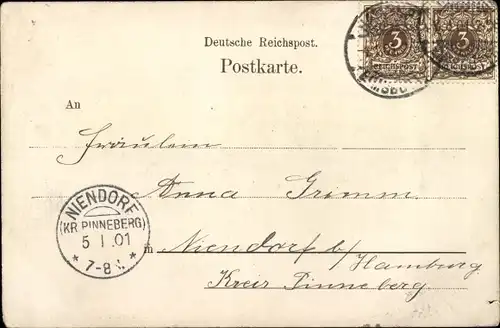 Deutsche Reichspost.
Postkarte.
3 3
REICHSPOST REICHSPOST
An
Fräulein
Anna Grimm
in Niendorf b/Hamburg
Kreis Pinneberg
NIENDORF
(KR. PINNEBERG)
5 1.01
* 7-8 *